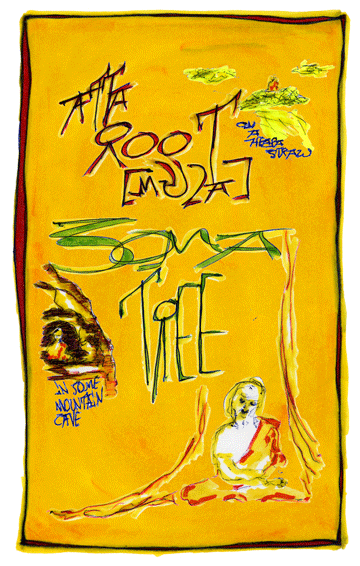 ROOT
[MULA]
ON
A
HEAPA
STRAW
SOMA
TREE
IN SOME
MOUNTAIN
CAVE